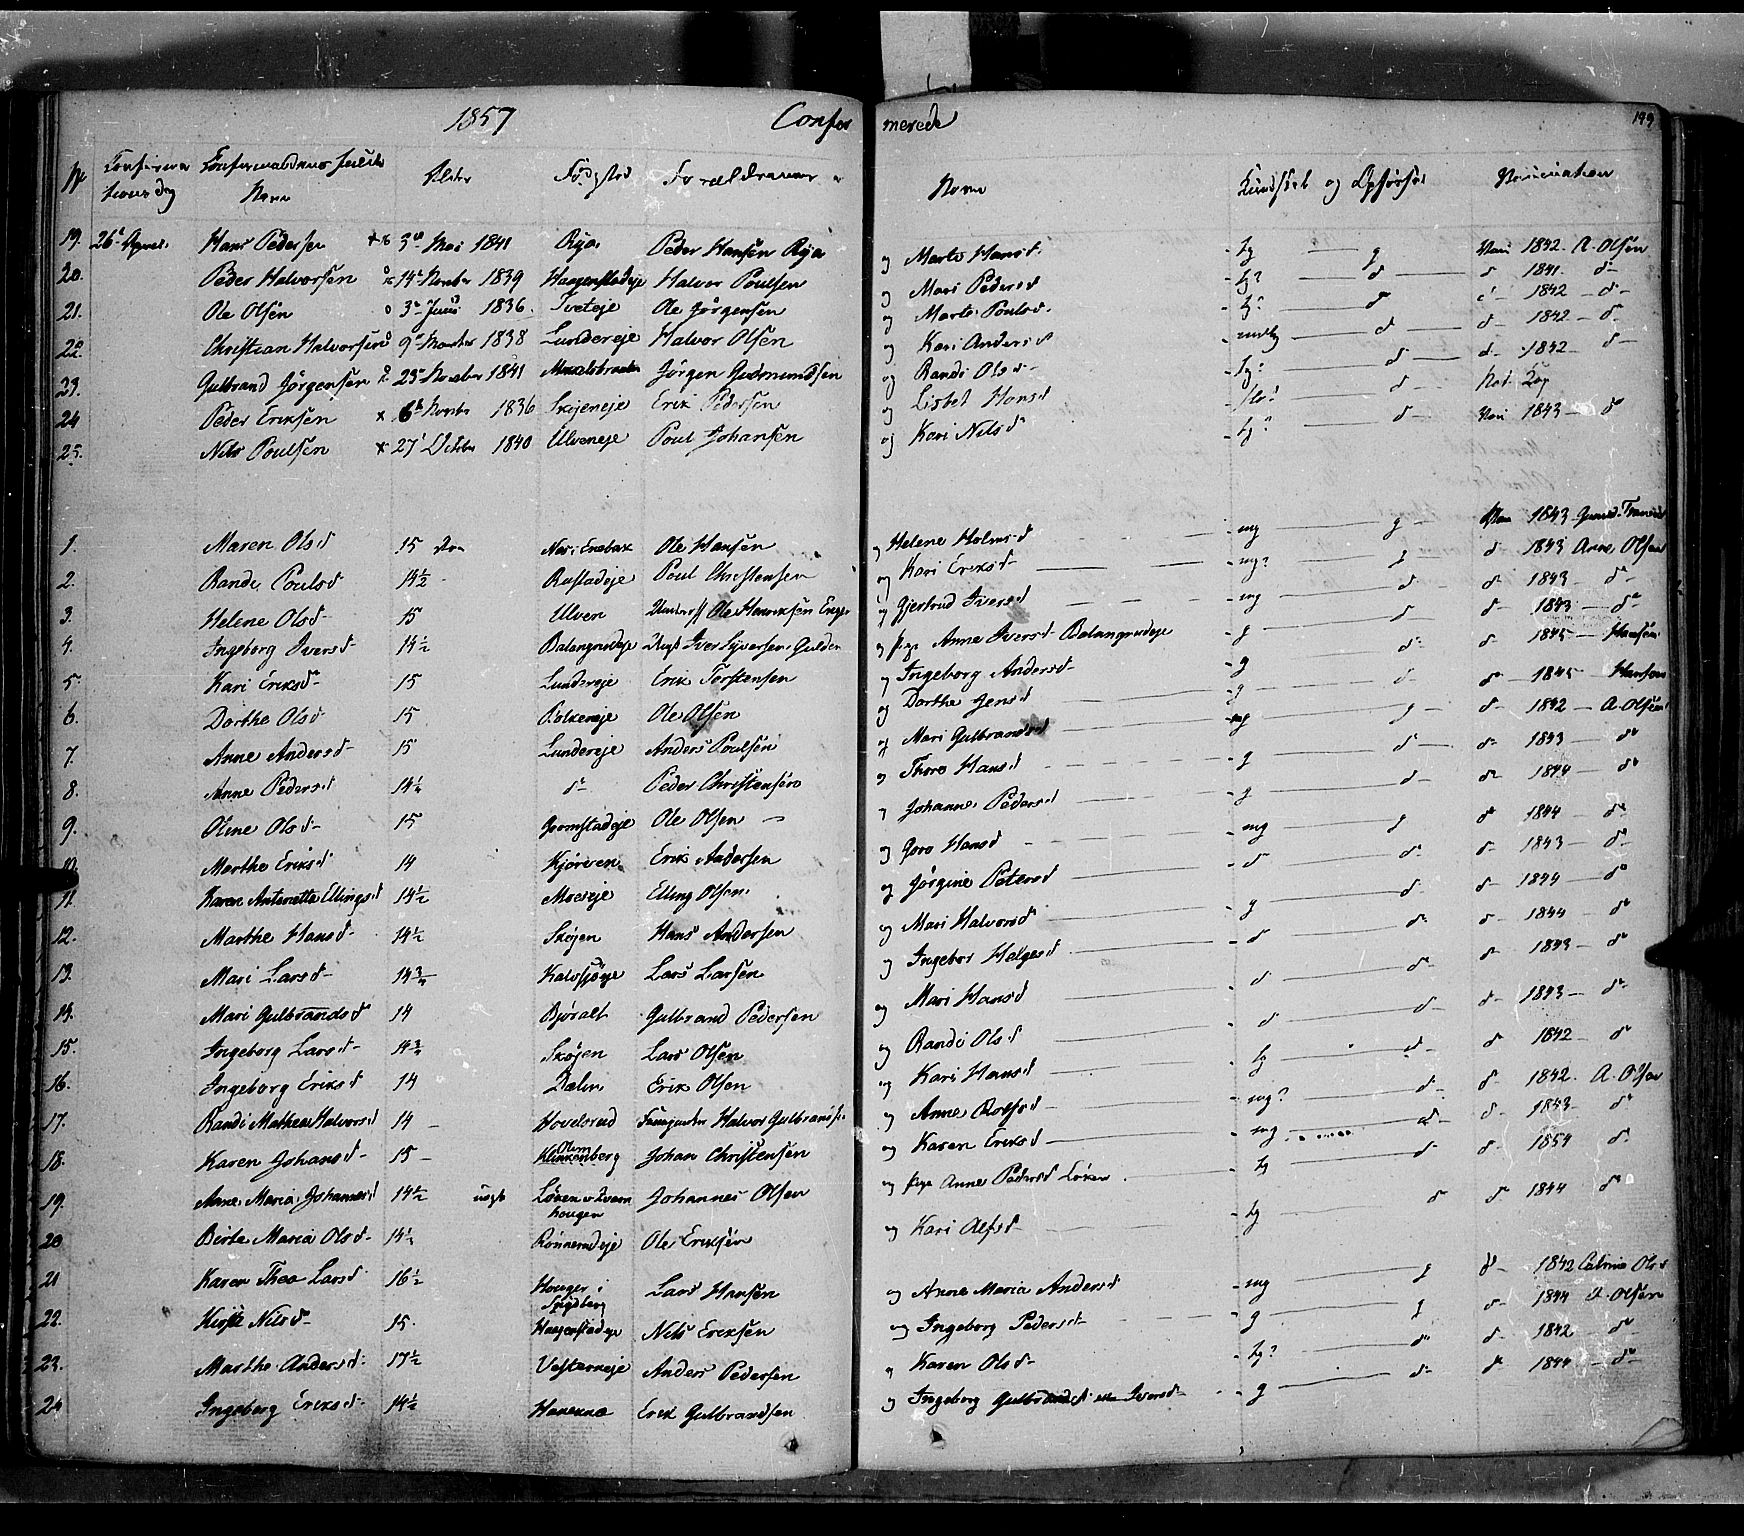 1857 Confir merede 199
Nr Confirma tions dag Confirmandens fulde Navn Alder Fødested Forældrenes Navne Kundskab og Opførsel Vaccination
19. 26de April. Hans Pedersen 3die Mai 1841 Rya Peder Hansen Rya og Marte Hansd. tg g Vacc 1842. A. Olsen
20. Peder Halvorsen 14de Novber 1839 Haagenstadeje Halvor Poulsen og Mari Pedersd tg? d d 1841. d
21. Ole Olsen 3die Juni 1836. Tveteje Ole Jörgensen og Marte Poulsd. tg? d d 1842 d
22 Christian Halvorsen 9de Novber 1838 Lundereje Halvor Olsen og Kari Andersd d d 1842 d
23. Gulbrand Jörgensen 23de November 1841 Jörgen Gudmundsen og Randi Olsd tg? d d 1842 d
24 Peder Eriksen 6te Novbr 1836 Skøjeneje Erik Pedersen og Lisbet Hansd d Nat. Kop
25. Nils Poulsen 27de October 1840 Ulveneje Poul Johansen og Kari Nilsd tg? d Vacc 1843 d
1. Maren Olsd 15 Aar Nordi Enebak Ole Hansen og Helene Holmsd mg g Vacc 1843
2. Randi Poulsd 14½ Rustadeje Poul Christensen og Kari Eriksd mg? g d 1843 Arne Olsen
3. Helene Olsd 15 Ulven Ole Henriksen og Gjertrud Iversd mg d d 1843 d
4. Ingeborg Iversd 14½ Balangrudeje Iver Syversen og pige Anne Iversd Balangrudeje g d d 1843 d
5 Kari Eriksd 15 Lundereje Erik Torstensen og Ingeborg Andersd g d d 1845 Hansen
6. Dorthe Olsd 15 Ole Olsen og Dorthe Jensd g d d 1845 Hansen
7. Anne Andersd 15 Lundereje Anders Poulsen og Mari Gulbrandsd mg g d 1842 A. Olsen
8. Anne Pedersd 14½ d Peder Christensen og Thore Hansd g d d 1843 d
9. Oline Olsd 15 Gromstadeje Ole Olsen og Johanne Pedersd g d d 1844 d
10. Marthe Eriksd 14 Kjörven Erik Andersen og Goro Hansd mg g d 1844 d
11. Karen Antonette Ellingsd 14½ Moereje Elling Olsen og Jörgine Petersd d d d 1843 d
12. Marthe Hansd 14½ Skøjen Hans Andersen og Mari Halvorsd g d d 1844 d
13. Mari Larsd 14¾ Kalvsjøeje Lars Larsen og Ingebor Helgesd d d d 1844 d
14. Mari Gulbrandsd 14 Björalt Gulbrand Pedersen og Mari Hansd d d d 1843 d
15. Ingeborg Larsd 14¾ Skøjen Lars Olsen og Randi Olsd d d d 1843 d
16. Ingeborg Eriksd 14 Dælen Erik Olsen og Kari Hansd tg d d 1842 d
17. Randi Mathea Halvorsd 14 Hovelsrud Halvor Gulbrandsen og Anne Rolfsd mg? d d 1842. A. Olsen
18. Karen Johansd 15 Johan Christensen og Karen Eriksd mg d d 1843 d
19. Anne Maria Johannesd 14½ uægte Løken Johannes Olsen og pige Anne Pedersd Løken tg d d 1854 d
20 Birte Maria Olsd 14½ Rönnerudeje Ole Eriksen og Kari Alfsd tg d d 1844 d
21 Karen Thea Larsd 16½ Hauger i Spydberg Lars Hansen og Anne Maria Andersd mg g d 1842 Catrine Olsd
22. Kirsti Nilsd 15. Haagenstadeje Nils Eriksen og Ingeborg Pedersd g g d 1844 A. Olsen
23. Marthe Andersd 17½ Vestereneje Anders Pedersen og Karen Olsd tg? d d 1842 d
24 Ingeborg Eriksd 14½ Erik Gulbrandsen og Ingeborg Iversd g d d 1844 d